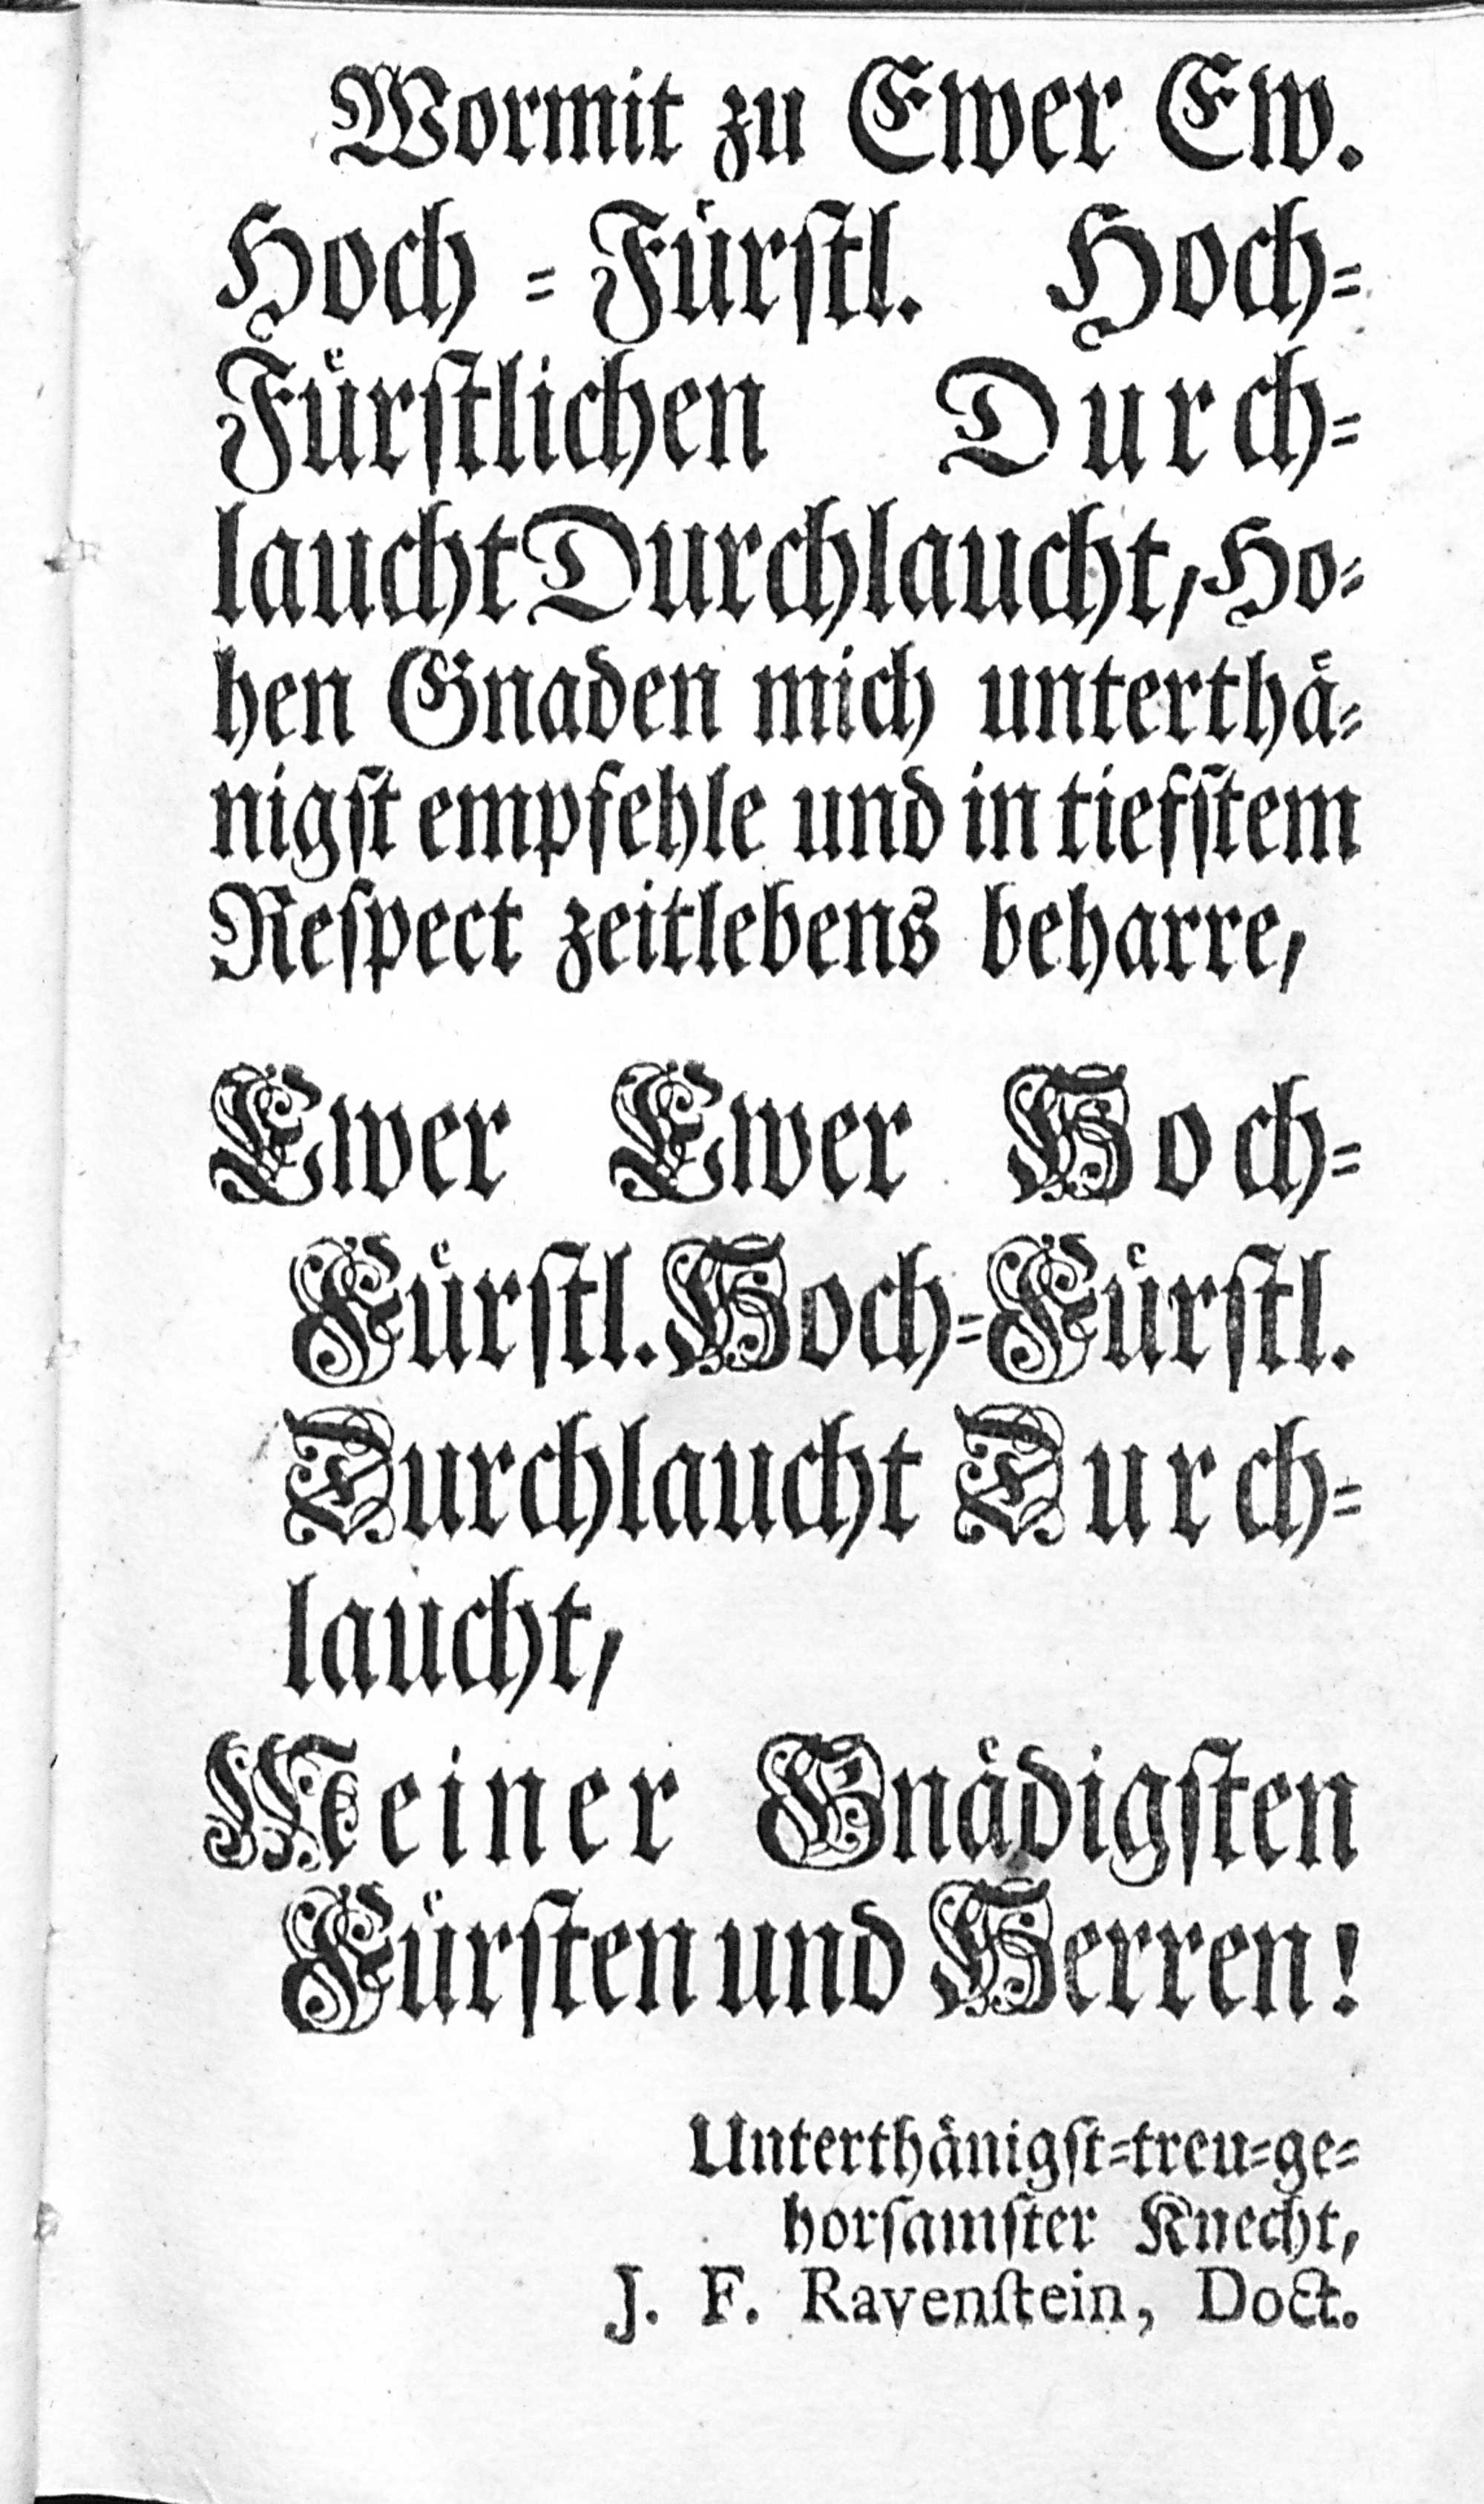 Wormit zu Ewer Ew.
Hoch = Fürſtl. Hoch=
Fürſtlichen Durch=
laucht Durchlaucht, Ho=
hen Gnaden mich unterthä=
nigſt empfehle und in tiefſtem
Reſpect zeitlebens beharre,
Ewer Ewer Hoch=
Fürſtl. Hoch=Fürſtl.
Durchlaucht Durch=
laucht,
Meiner Gnädigſten
Fürſten und Herren!
Unterthänigſt=treu=ge=
horſamſter Knecht,
J. F. Ravenſtein, Doct.